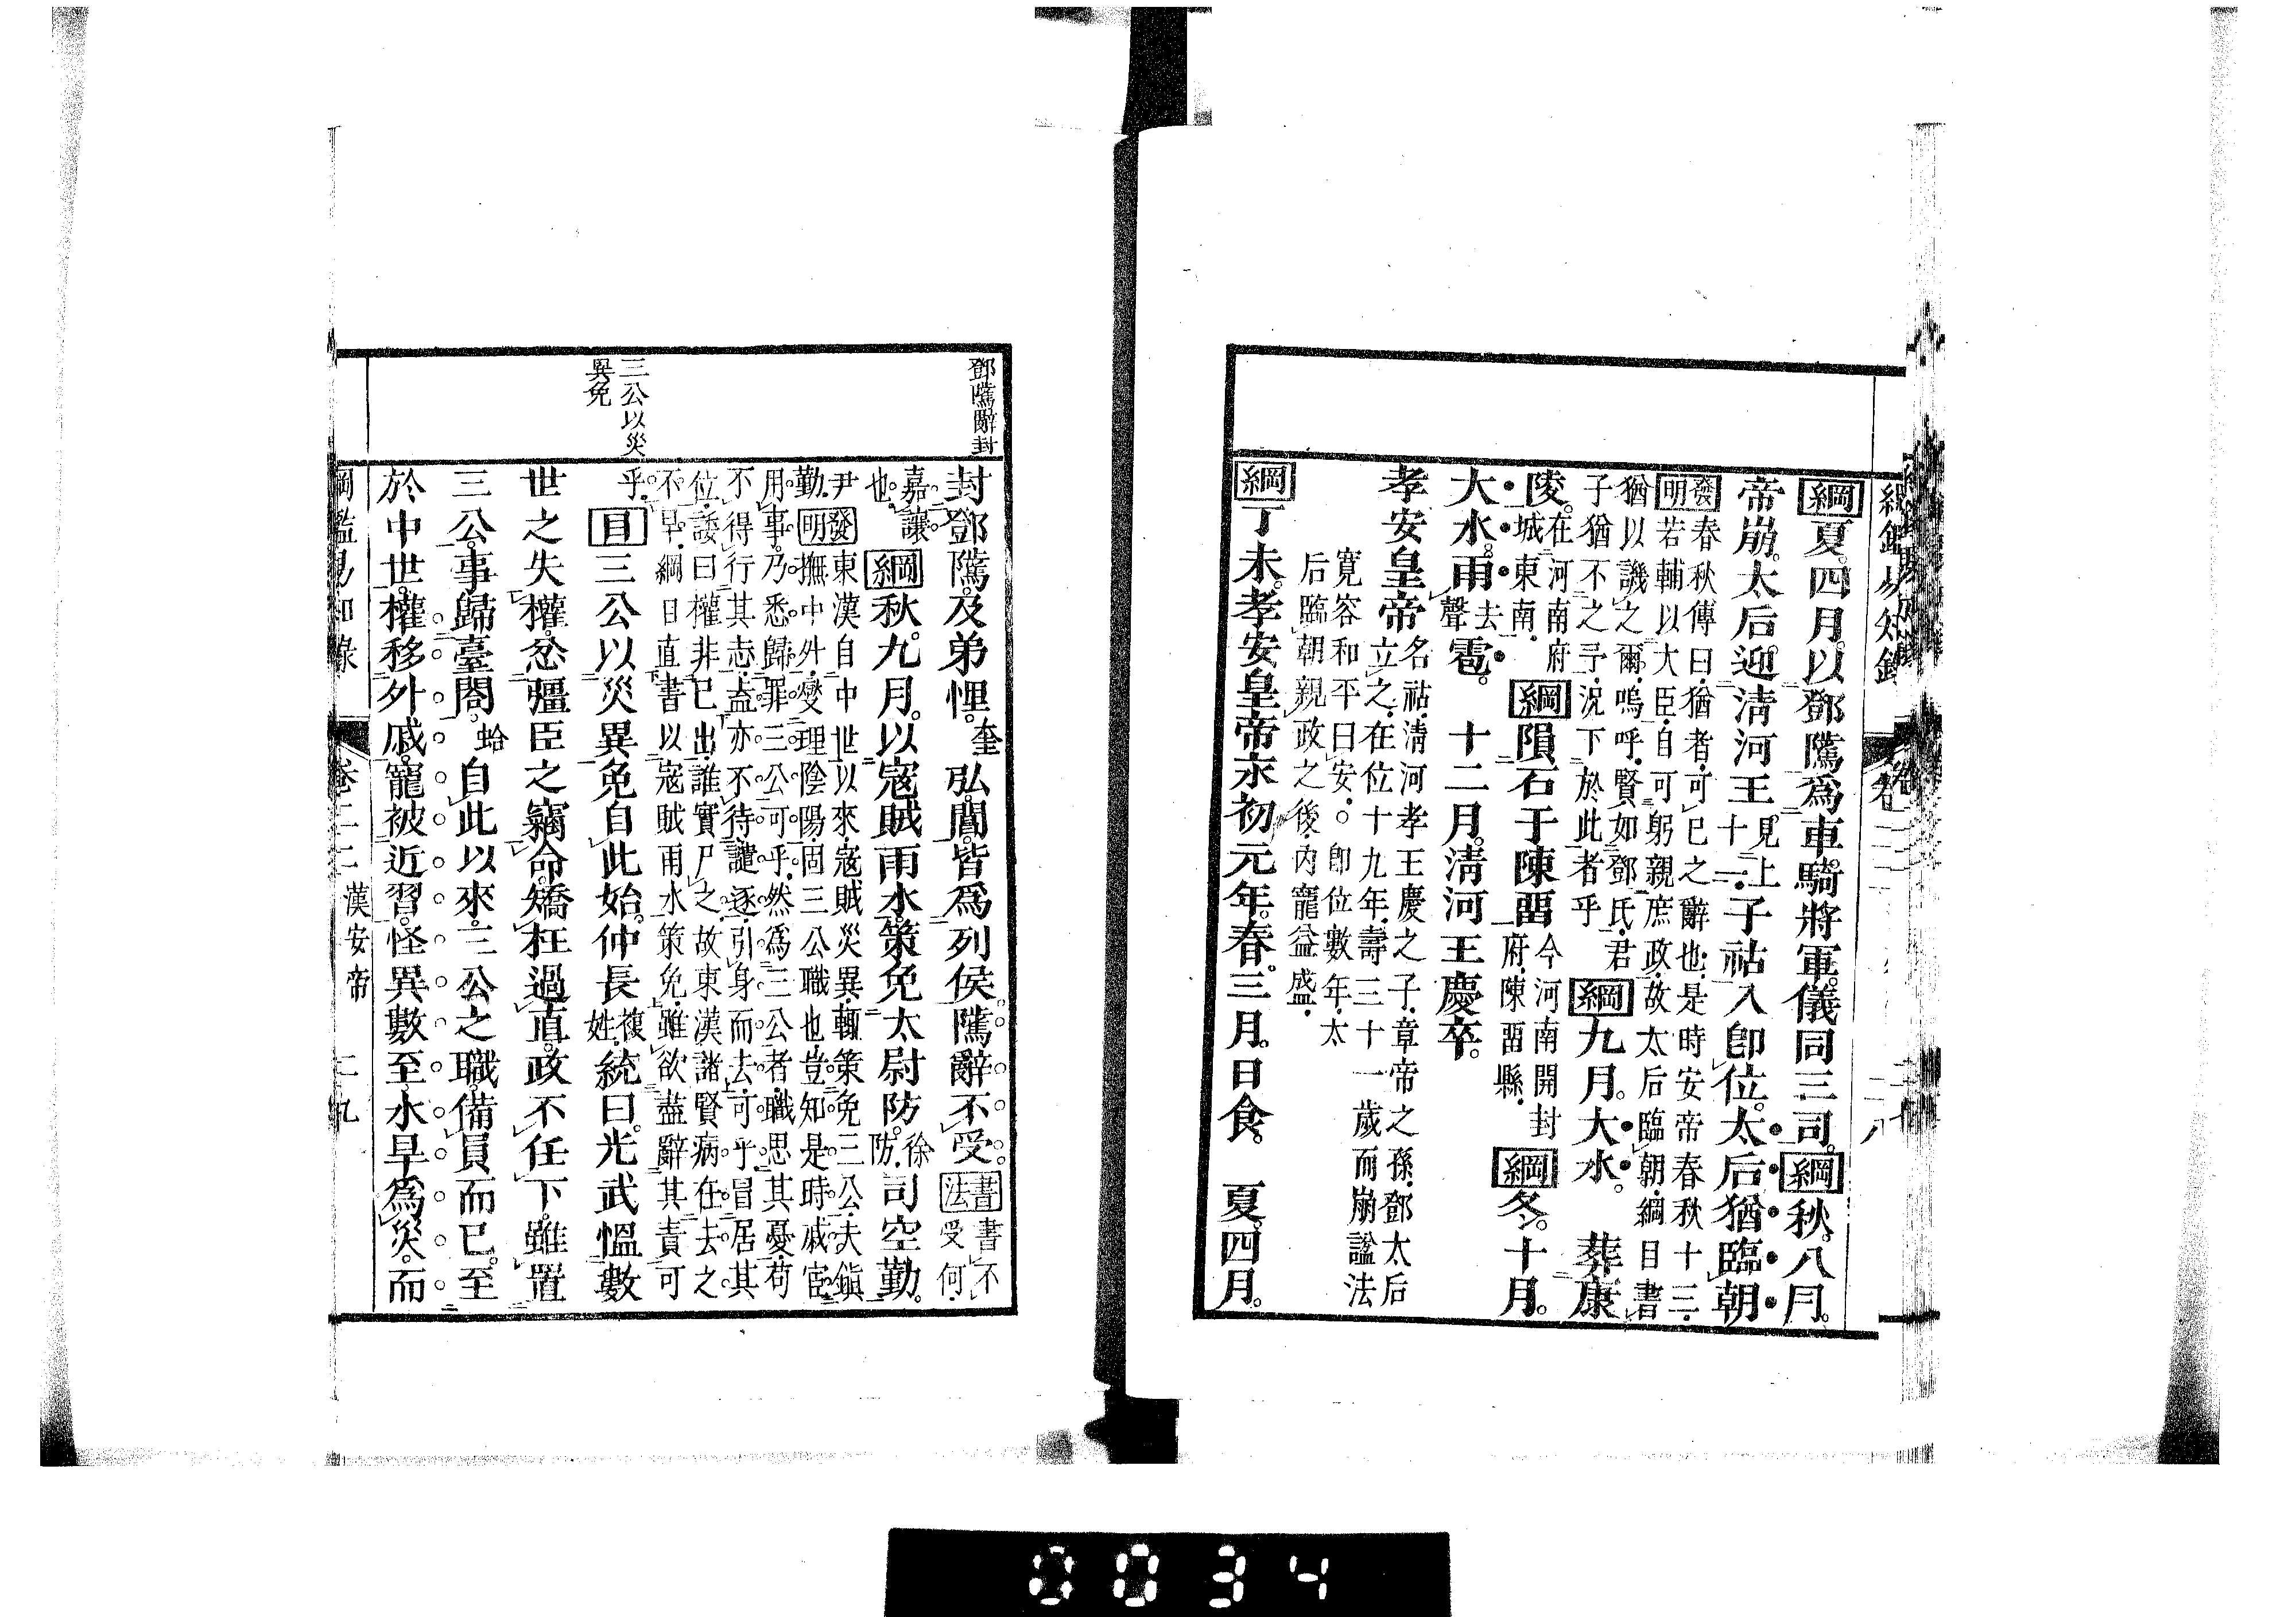 綱夏。四月。以鄧隲爲車騎將軍。儀同三司。綱秋。八月。
帝崩。太后迎淸河王
見上
十二。
子祜入卽位。太后猶臨朝
發明
春秋傳曰。猶者。可已之辭也。是時安帝春秋十三。
若輔以大臣。自可躬親庶政。故太后臨朝。綱目書
猶以譏之爾。嗚呼。賢如鄧氏。君
子猶不之予。況下於此者乎
綱九月。大水。 葬康
陵。
在河南府
城東南。
綱隕石于陳畱
今河南開封
府。陳畱縣。
綱冬。十月。
大水。雨
去
聲
雹。 十二月。淸河王慶卒。
孝安皇帝
名祜。淸河孝王慶之子。章帝之孫。鄧太后
立之。在位十九年。壽三十一歲而崩。諡法
寬容和平曰安。○卽位數年。太
后臨朝。親政之後。內寵益盛。
綱丁未。孝安皇帝永初元年。春。三月。日食。 夏。四月。
鄧隲辭封
封鄧隲。及弟悝。
奎
弘。閶。皆爲列侯。隲辭不受。
書法
書不
受何。
嘉讓
也。
綱秋。九月。以寇賊雨水。策免太尉防。
徐
防。
司空勤。
尹
勤。
發明
東漢自中世以來。寇賊災異。輒策免三公。夫鎭
撫中外。燮理陰陽。固三公職也。豈知是時戚宦
用事。乃悉歸罪三公可乎。然爲三公者。職思其憂。苟
不得行其志。盍亦不待譴逐。引身而去。可乎。冒居其
位。諉曰權非已出。誰實尸之。故東漢諸賢病在去之
不早。綱目直書以寇賊雨水策免。雖欲盡辭其責可
乎。
三公以災
異免
目三公以災異免自此始。仲長
複
姓。
統曰。光武慍數
世之失權。忿彊臣之竊命。矯枉過直。政不任下。雖置
三公。事歸臺閣。
蛤
自此以來。三公之職。備員而已。至
於中世。權移外戚。寵被近習。怪異數至。水旱爲災。而
綱鑑易知錄 卷二二 漢安帝 二九